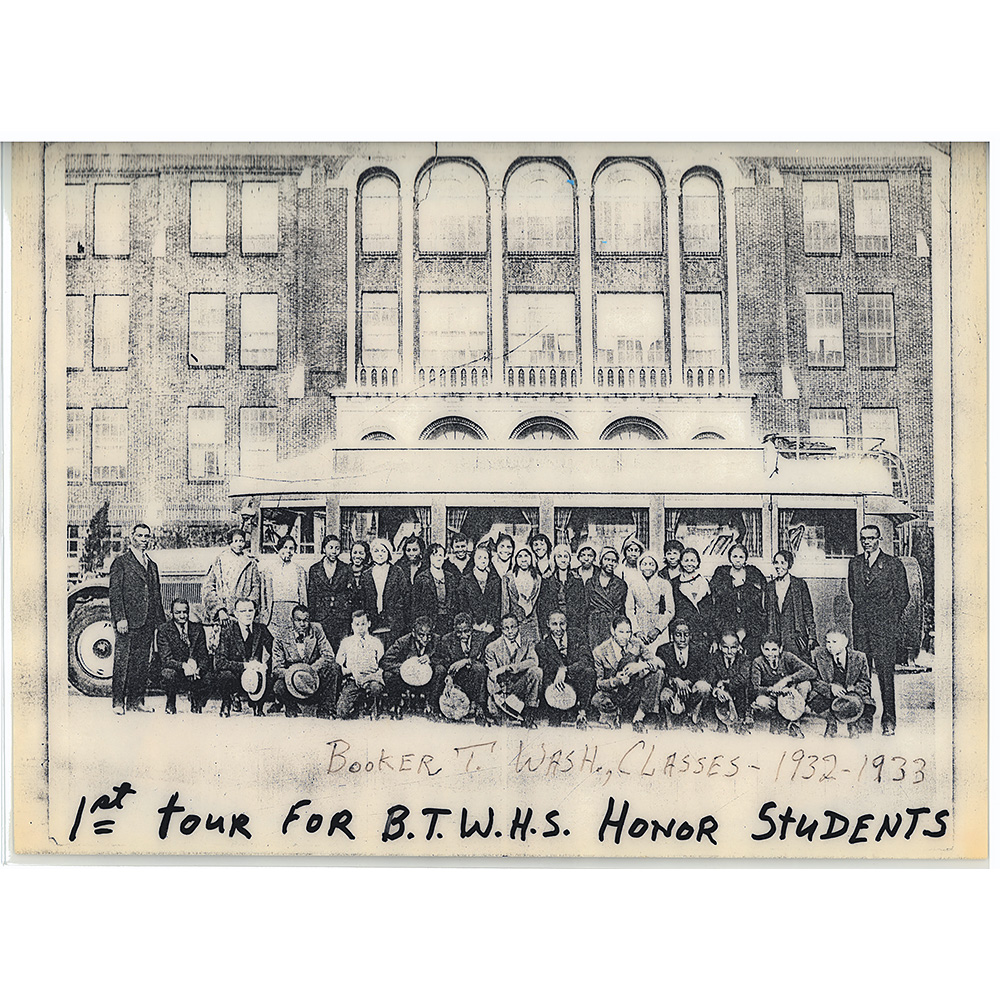 BOOKER T. WASH., CLASSES - 1932-1933
1st tour FOR B.T.W.H.S. HONOR STUDENTS